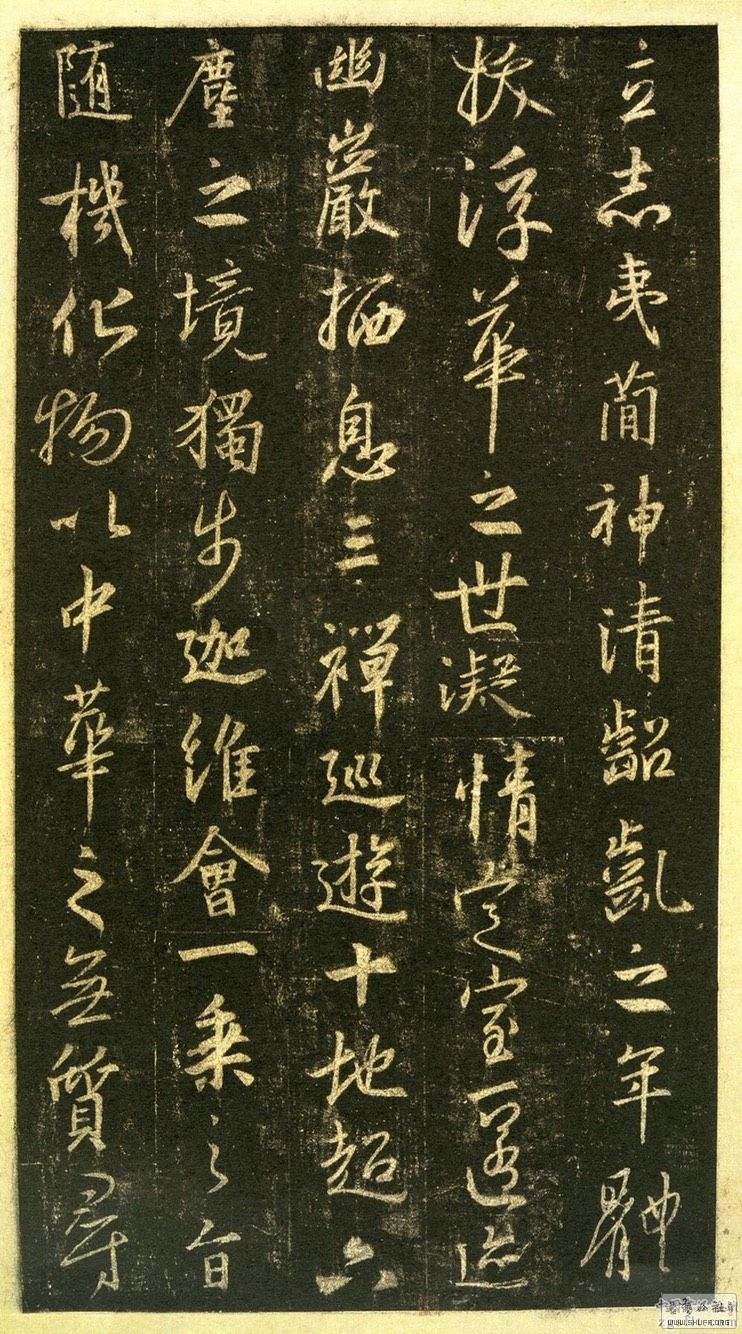 立志夷簡神清齠齔之年體
拔浮華之世凝情定室匿迹
幽巖栖息三禪巡遊十地超六
塵之境獨步迦維會一乘之旨
隨機化物以中華之無質尋
WWW.SHUFA.ORG